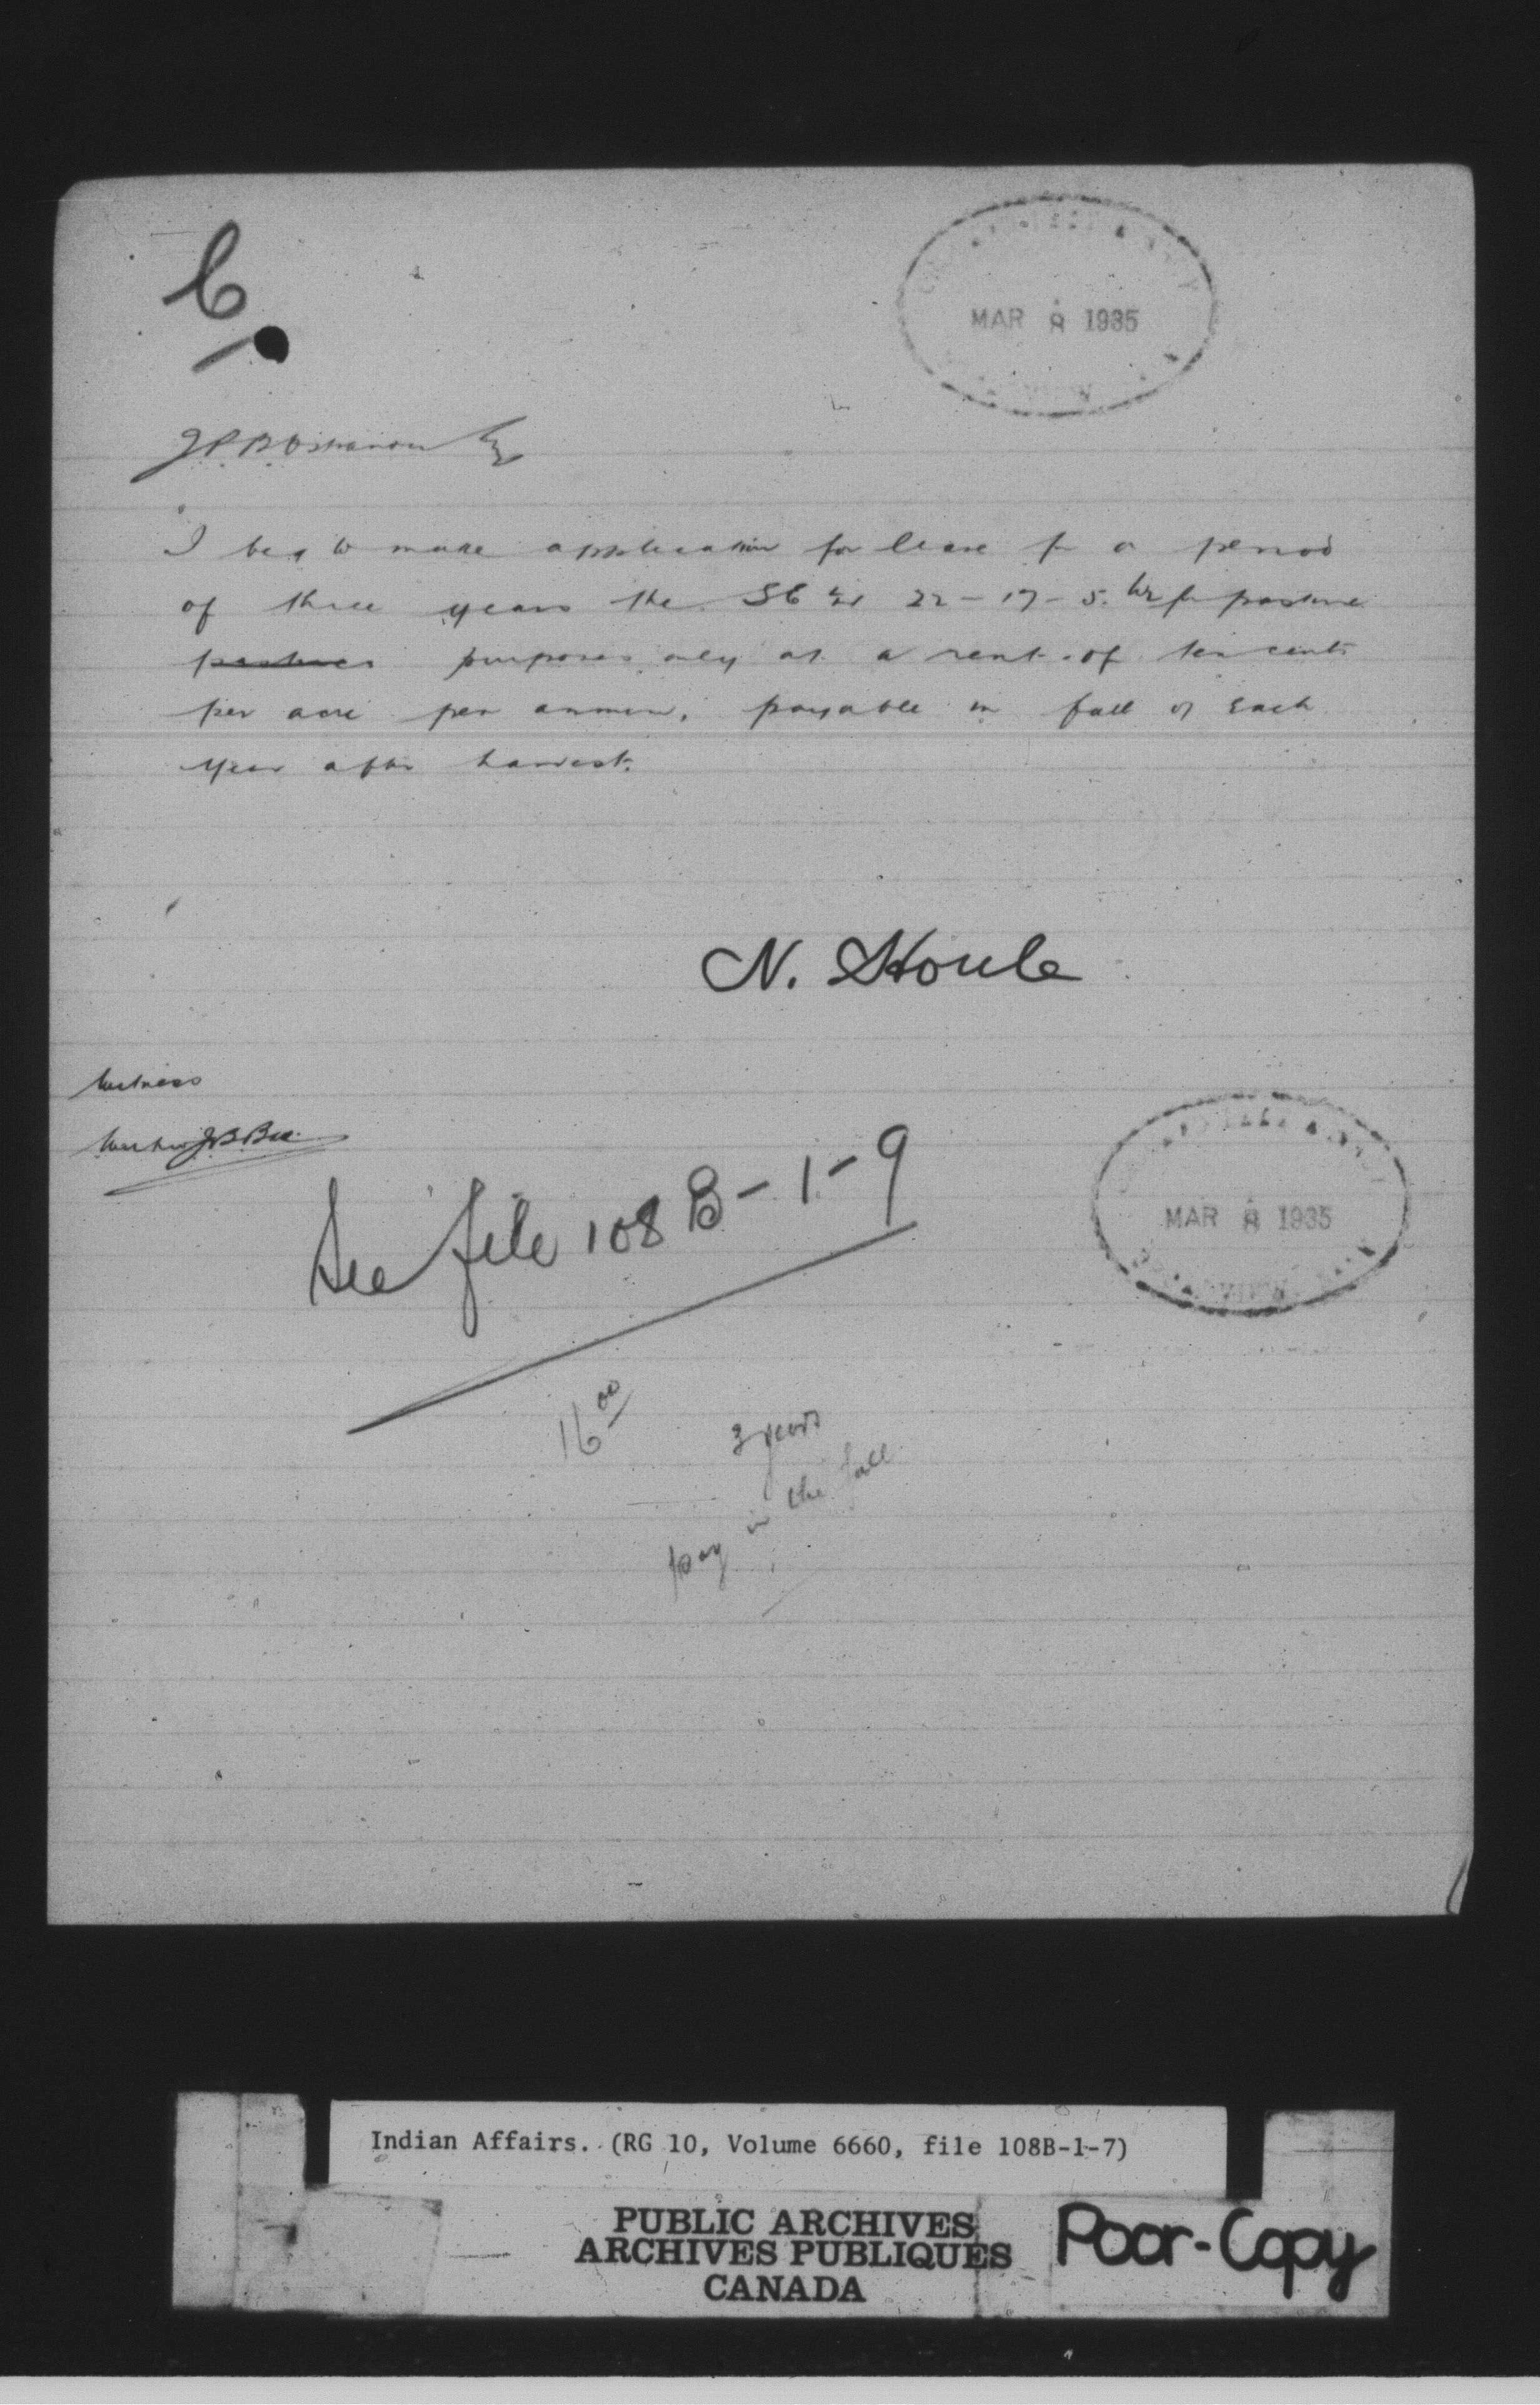 C
MAR 8 1935
I beg to make application for lease for a period
of three years the SE 1/4 22-17-5. W2 for pasture
pastures purposes only at a rent of ten cents
per acre per annum, payable in fall of each
year after harvest.
N. Houle
Witness
J B Bee
See file 108 B-1-9
MAR 8 1935
16 00
3 years
pay in the fall
Indian Affairs. (RG 10, Volume 6660, file 108B-1-7)
PUBLIC ARCHIVES
ARCHIVES PUBLIQUES
CANADA
Poor-Copy